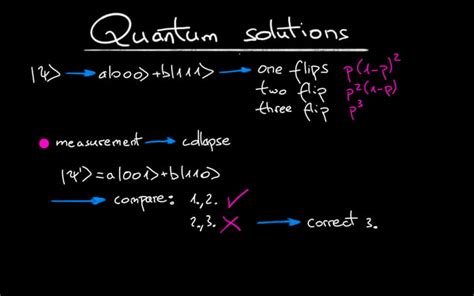 Quantum solutions
|ψ⟩ → a|000⟩+b|111⟩ → one flips p(1-p)²
two flip p²(1-p)
three flip p³
measurement → collapse
|ψ'⟩=a|001⟩+b|110⟩
→ compare: 1.,2. ✓
2.,3. ✗ → correct 3.